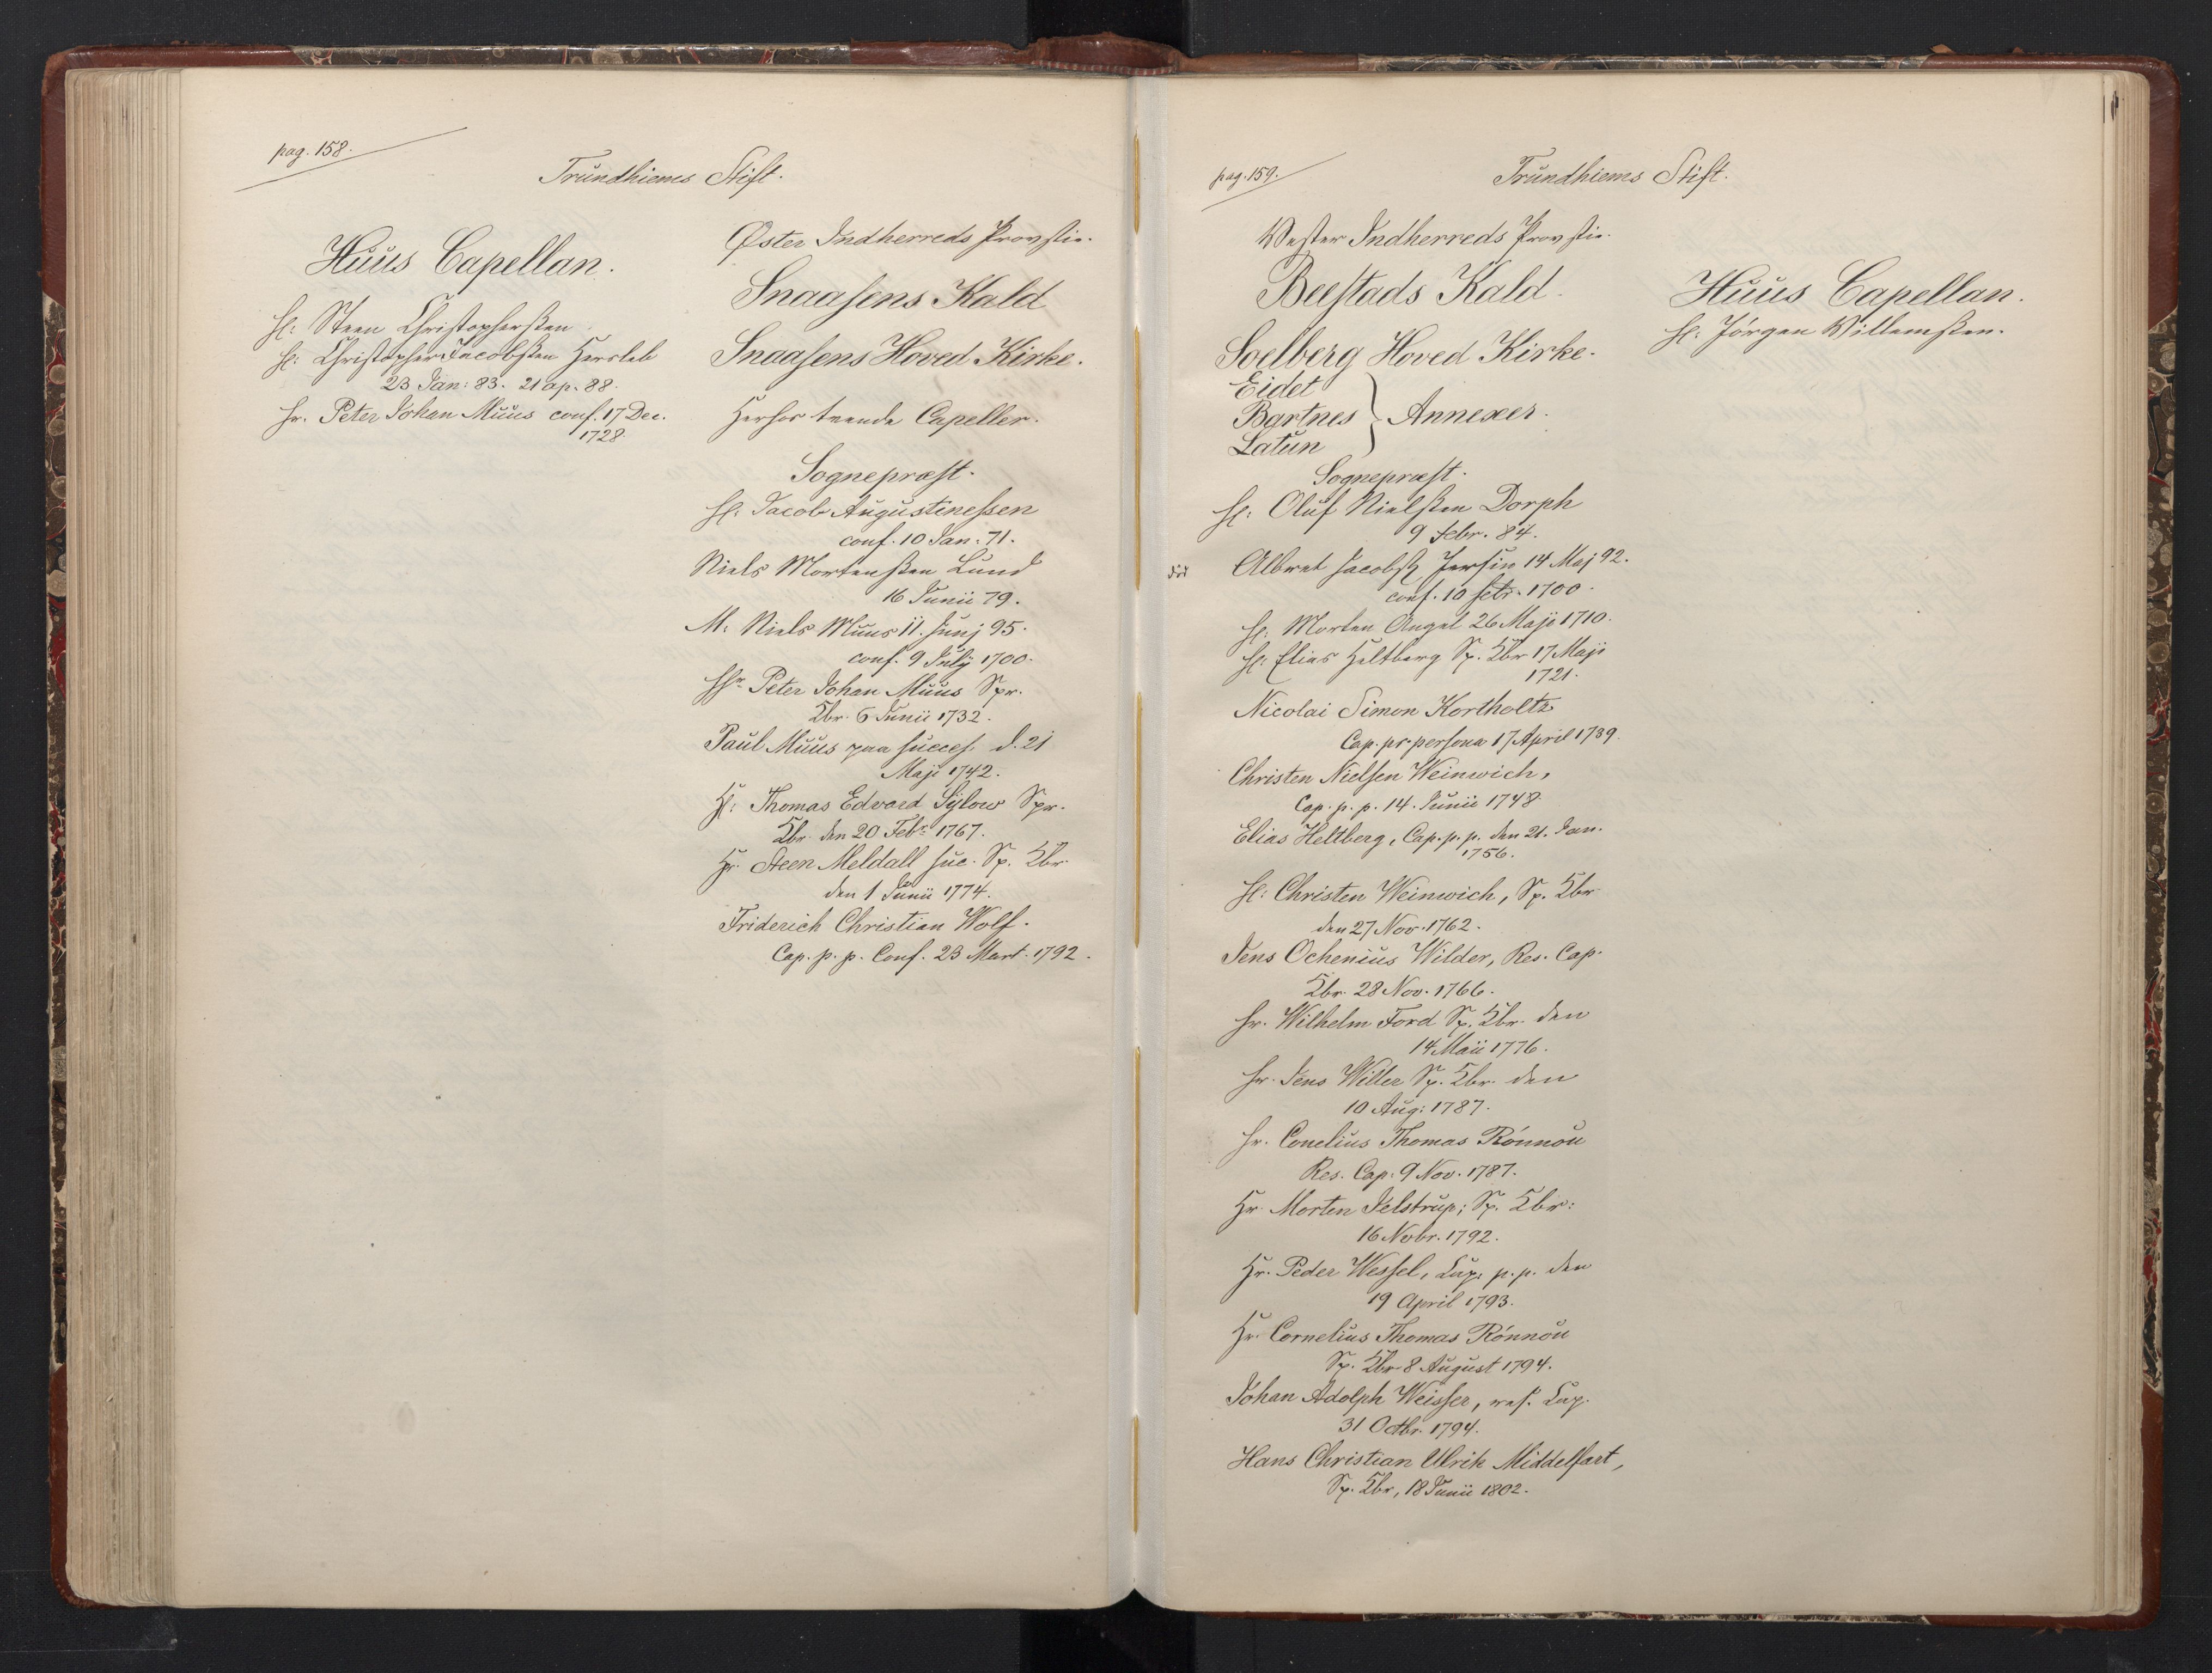 pag. 158.
Trundhiems Stift.
Huus Capellan.
H: Steen Christophersen
H: Christopher Jacobsen Hersleb
23 Jan: 83. 21 ap. 88.
Hr. Peter Johan Muus conf. 17 Dec.
1728
Øster Indherreds Provstie.
Snaasens Kald
Snaasens Hoved Kirke.
Herhos tvende Capeller.
Sognepræst.
H: Jacob Augustinessen
conf. 10 Jan. 71.
Niels Mortensen Lund
16 Junii 79.
M: Niels Muus 11. Junj 95.
conf. 9 July 1700.
Hr Peter Johan Muus Spr.
Kbr. 6 Junii 1732.
Paul Muus paa succes. d. 21
Maji 1742.
H: Thomas Edvard Sylow Spr.
Kbr. den 20 Febr 1767.
Hr. Steen Meldall suc. Sp. Kbr.
den 1 Junii 1774.
Friderich Christian Wolf.
Cap. p. p. Conf. 23 Mart. 1792.
pag. 159.
Trundhiems Stift.
Vester Indherreds Provstie.
Beestads Kald.
Soelberg Hoved Kirke.
Eidet
Bartnes } Annexer.
Latun
Sognepræst.
H: Oluf Nielsen Dorph
9 Febr. 84.
Albret Jacobs Jersin 14 Maj 92.
conf. 10 1700.
H: Morten Angel 26 Maji 1710.
H: Elias Heltberg Sp. Kbr 17 Maji
1721.
Nicolai Simon Kortholtz
Cap. pr. persona 17 April 1739.
Christen Nielsen Weinwich,
Cap. p. p. 14. Junii 1748.
Elias Heltberg, Cap. p. p. den 21. Jan.
1756.
H: Christen Weinwich, Sp. Kbr
den 27 Nov. 1762.
Jens Ochenius Wilder, Res. Cap.
Kbr. 28 Nov. 1766.
Hr. Wilhelm Ford Sp. Kbr. den
14 Maii 1776.
Hr. Jens Willer Sp. Kbr. den
10 Aug: 1787.
Hr. Conelius Thomas Rönnou
Res. Cap. 9 Nov. 1787.
Hr. Morten Jelstrup; Sp. Kbr:
16 Novbr. 1792.
Hr. Peder Wessel, Cap. p. p. den
19 April 1793.
Hr. Cornelius Thomas Rönnou
Sp. Kbr 8 August 1794.
Johan Adolph Weisser, res. Cap.
31 Octbr. 1794.
Hans Christian Ulrik Middelfart,
Sp. Kbr, 18 Junii 1802.
Huus Capellan.
H: Jörgen Villemsen.